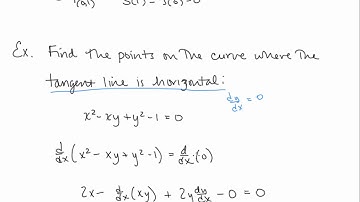 Ex. Find the points on the curve where the
tangent line is horizontal:
dy/dx = 0
x² - xy + y² - 1 = 0
d/dx (x² - xy + y² - 1) = d/dx (0)
2x - d/dx (xy) + 2y dy/dx - 0 = 0